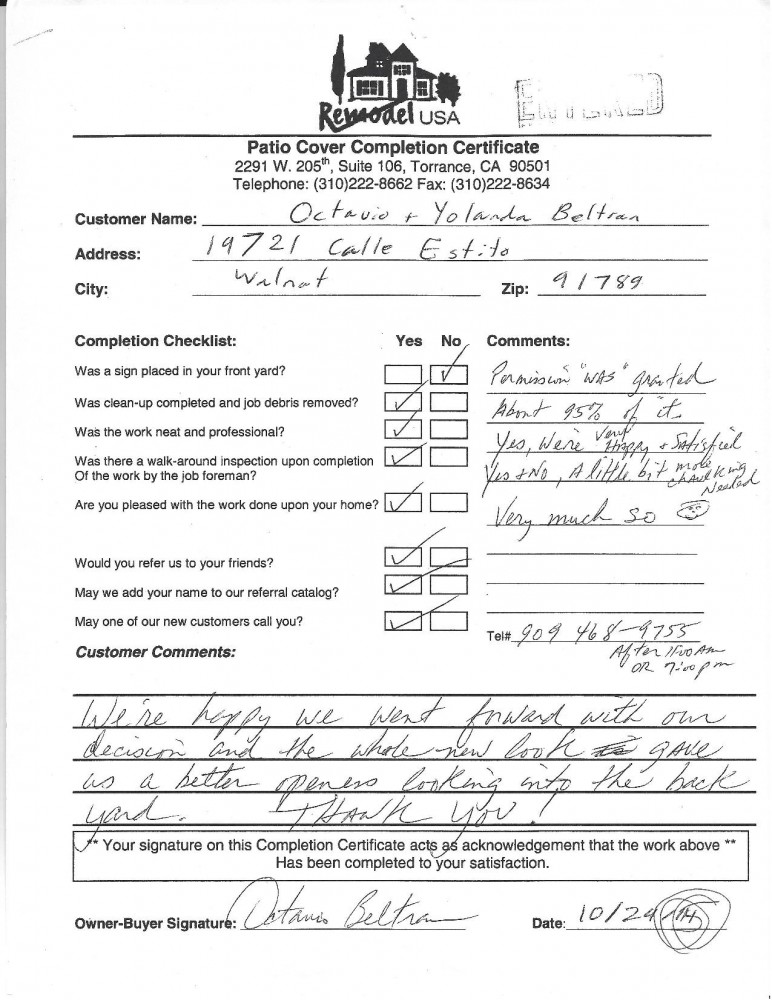 Remodel USA
ENTERED
Patio Cover Completion Certificate
2291 W. 205th, Suite 106, Torrance, CA 90501
Telephone: (310)222-8662 Fax: (310)222-8634
Customer Name: Octavio + Yolanda Beltran
Address: 19721 Calle Estito
City: Walnut Zip: 91789
Completion Checklist: Yes No Comments:
Was a sign placed in your front yard? Permission "WAS" granted
Was clean-up completed and job debris removed? About 95% of it
Was the work neat and professional? Yes, We're Very Happy + Satisfied
Was there a walk-around inspection upon completion Yes + No, A little bit more
Of the work by the job foreman? chaulking Needed
Are you pleased with the work done upon your home? Very much so
Would you refer us to your friends?
May we add your name to our referral catalog?
May one of our new customers call you? Tel# 909 468-9755
Customer Comments: After 11:00 Am
OR 7:00 pm
We're happy we went forward with our
decision and the whole new look gave
us a better openess looking into the back
yard. THANK YOU!
** Your signature on this Completion Certificate acts as acknowledgement that the work above **
Has been completed to your satisfaction.
Owner-Buyer Signature: Octavio Beltran Date: 10/29